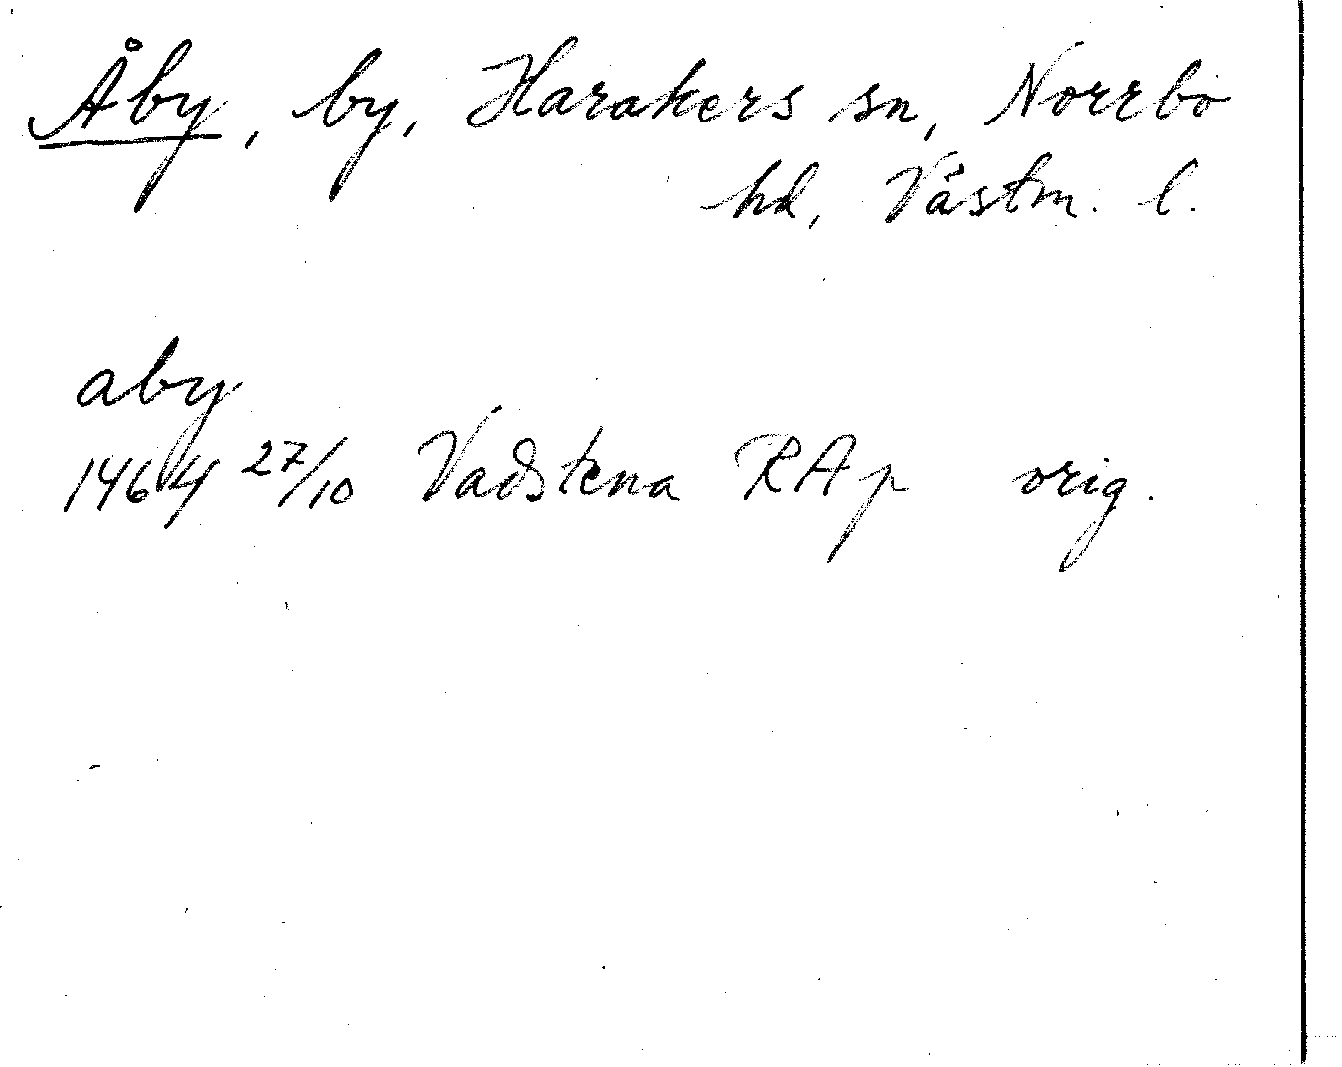 Åby, by, Harakers sn, Norrbo
hd, Västm. l.
aby
1464 27/10 Vadstena RAp orig.